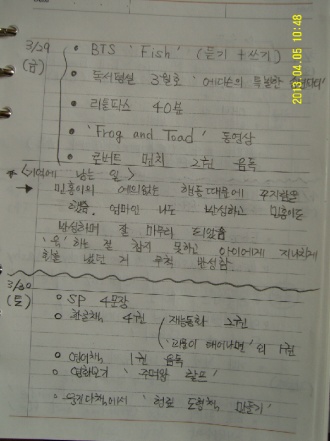 3/29 (금)
• BTS 'Fish' (듣기 + 쓰기)
• 독서평설 3월호 '에디슨의 특별한
• 리틀팍스 40분
• 'Frog and Toad' 동영상
• 로버트 먼치 2권 음독
* <기억에 남는 일>
→ 민홍이의 예의없는 행동때문에 꾸지람을
했음. 엄마인 나도 반성하고 민홍이도
반성하며 잘 마무리 되었음
'욱'하는 걸 참지 못하고 아이에게 지나치게
화를 냈던 거 무척 반성함
3/30 (토)
o SP 4문장
o 한글책 4권 ( 재능동화 3권
외 1권
o 영어책 1권 음독
o 영화보기 '주먹왕 랄프'
만들기'
2013.04.05 10:48